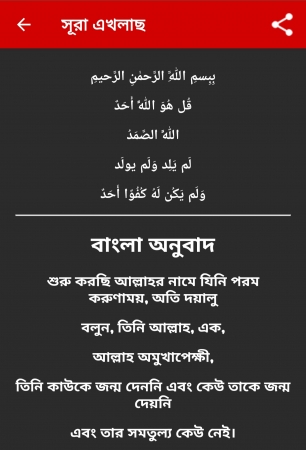 সূরা এখলাছ
بِسمِ اللَّهِ الرَّحمٰنِ الرَّحيمِ
قُل هُوَ اللَّهُ أَحَدٌ
اللَّهُ الصَّمَدُ
لَم يَلِد وَلَم يولَد
وَلَم يَكُن لَهُ كُفُوًا أَحَدٌ
বাংলা অনুবাদ
শুরু করছি আল্লাহর নামে যিনি পরম
করুণাময়, অতি দয়ালু
বলুন, তিনি আল্লাহ, এক,
আল্লাহ অমুখাপেক্ষী,
তিনি কাউকে জন্ম দেননি এবং কেউ তাকে জন্ম
দেয়নি
এবং তার সমতুল্য কেউ নেই।